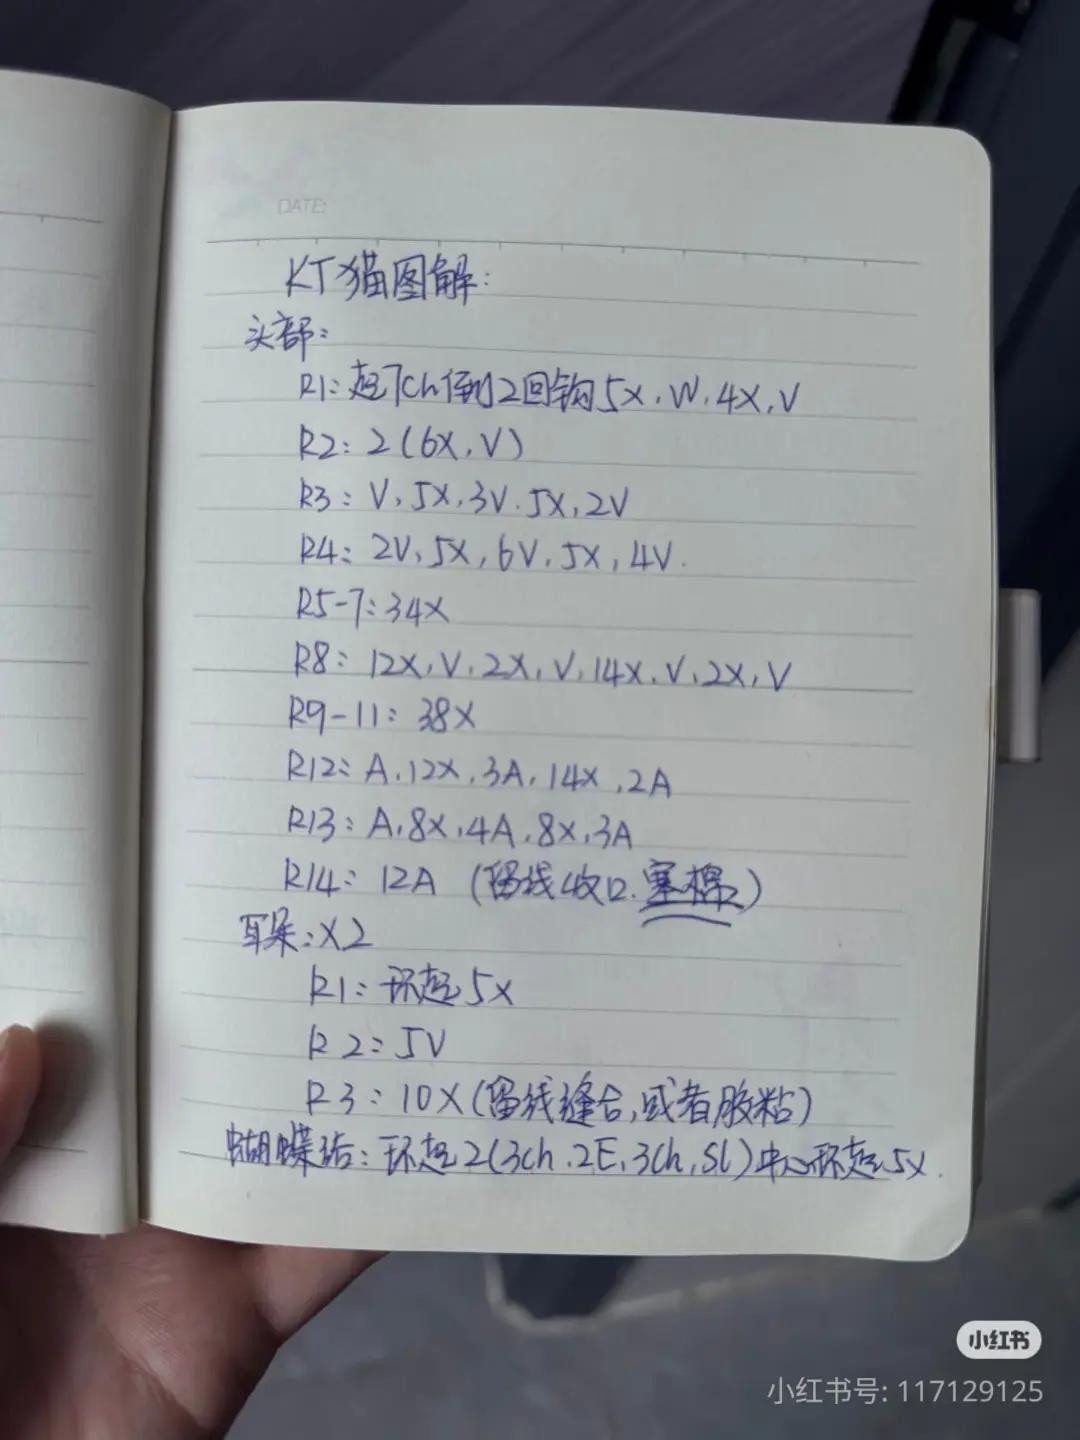 DATE:
KT猫图解:
头部:
R1: 起7ch倒2回钩5X.W.4X,V
R2: 2(6X,V)
R3: V,5X,3V.5X,2V
R4: 2V,5X,6V,5X,4V.
R5-7: 34X
R8: 12X,V.2X,V,14X,V.2X,V
R9-11: 38X
R12: A.12X.3A.14X.2A
R13: A.8X.4A.8X.3A
R14: 12A (留线收口.塞棉)
耳朵: X2
R1: 环起5X
R2: 5V
R3: 10X(留线缝合,或者胶粘)
蝴蝶结: 环起2(3ch.2E.3ch,Sl)中心环起5X.
小红书
小红书号: 117129125